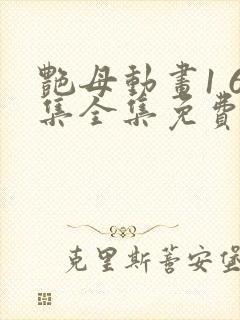 艷母動畫1 6
集全集免費
克里斯蒂安堡